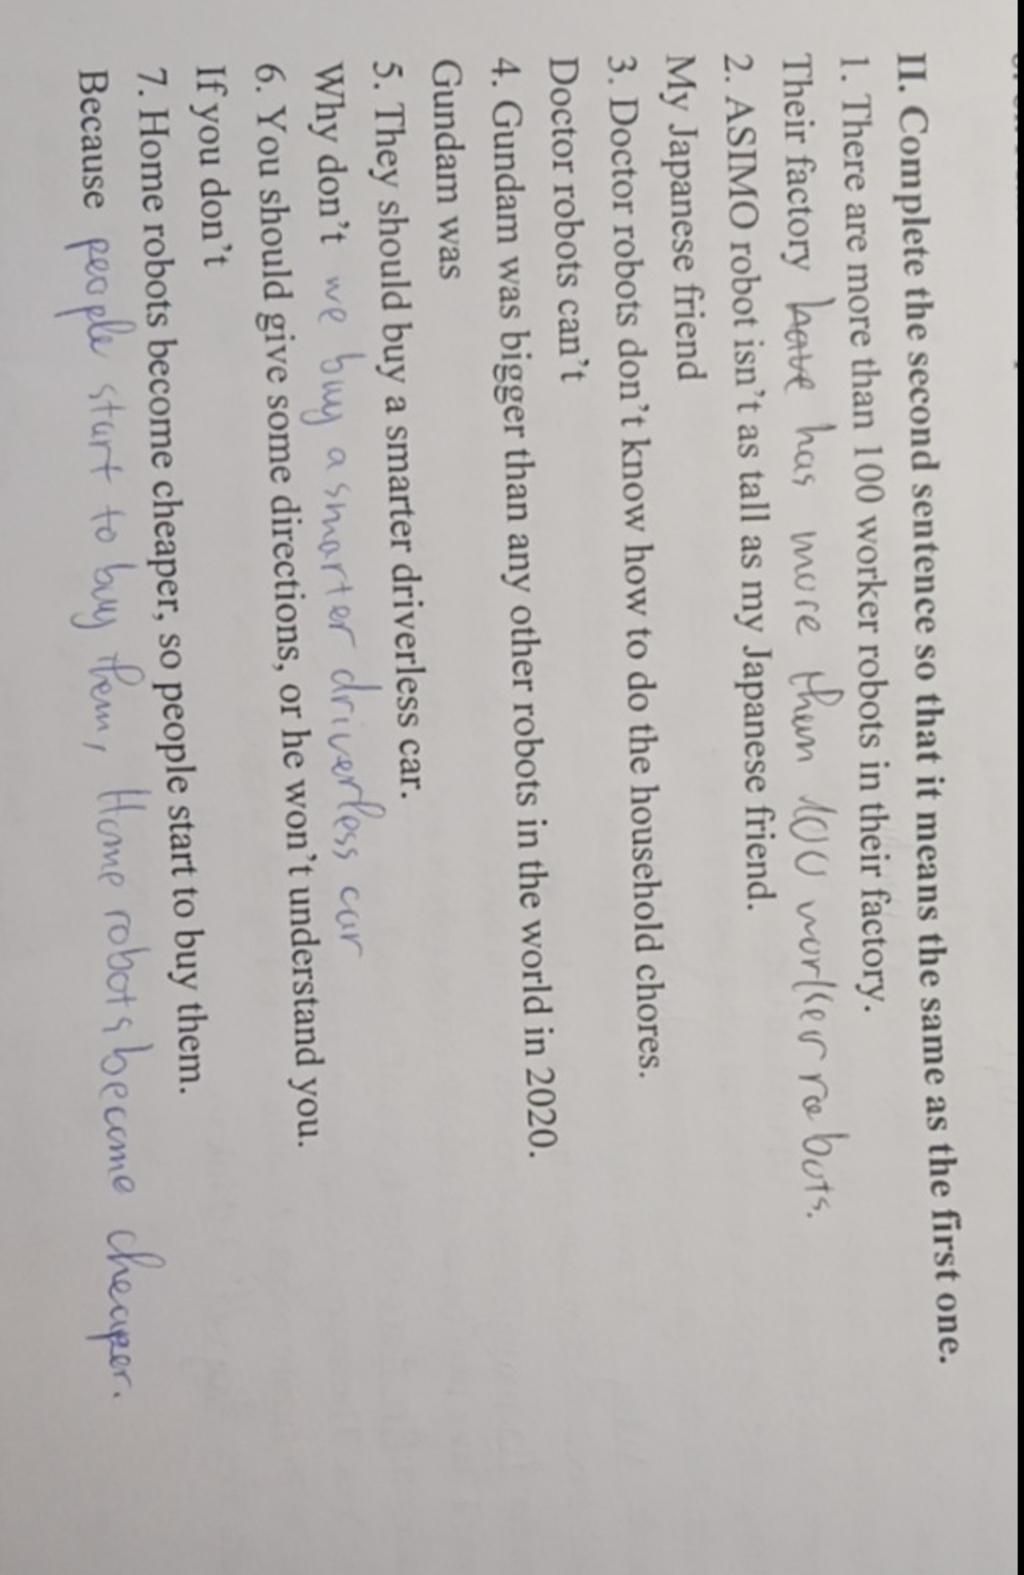 II. Complete the second sentence so that it means the same as the first one.
1. There are more than 100 worker robots in their factory.
Their factory have has more than 100 worker robots.
2. ASIMO robot isn't as tall as my Japanese friend.
My Japanese friend
3. Doctor robots don't know how to do the household chores.
Doctor robots can't
4. Gundam was bigger than any other robots in the world in 2020.
Gundam was
5. They should buy a smarter driverless car.
Why don't we buy a smarter driverless car
6. You should give some directions, or he won't understand you.
If you don't
7. Home robots become cheaper, so people start to buy them.
Because people start to buy them, Home robots become cheaper.